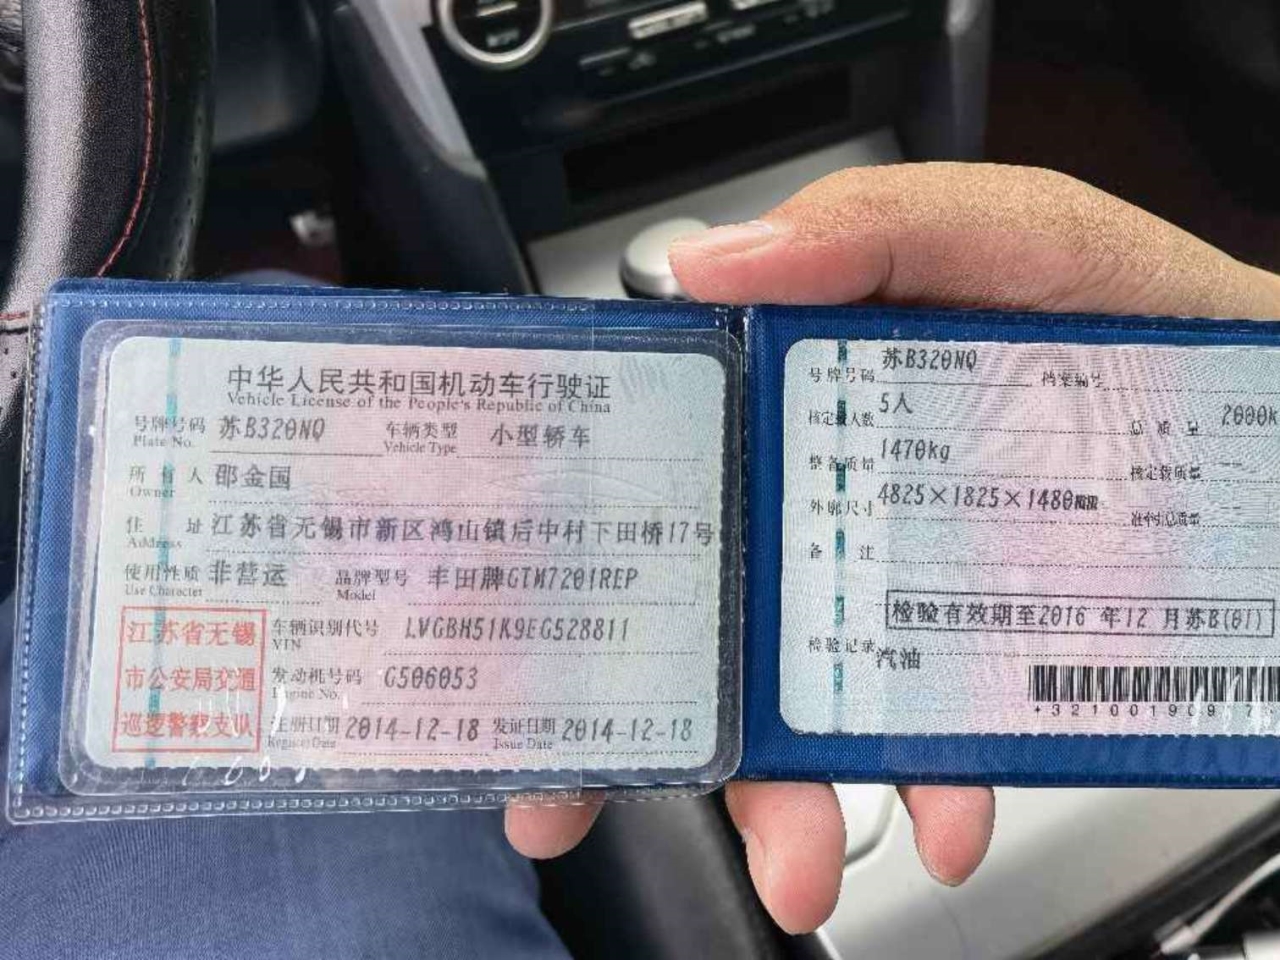 中华人民共和国机动车行驶证
Vehicle License of the People's Republic of China
号牌号码 苏B320NQ 车辆类型 小型轿车
Plate No. Vehicle Type
所有人 邵金国
Owner
住址 江苏省无锡市新区鸿山镇后中村下田桥17号
Address
使用性质 非营运 品牌型号 丰田牌GTM7201REP
Use Character Model
江苏省无锡
市公安局交通
巡逻警察支队
车辆识别代号 LVGBH51K9EG528811
VIN
发动机号码 G506053
Engine No.
注册日期 2014-12-18 发证日期 2014-12-18
Register Date Issue Date
号牌号码 苏B320NQ 档案编号
核定载人数 5人 总质量 2000K
整备质量 1470kg 核定载质量 --
外廓尺寸 4825×1825×1480mm 准牵引总质量 --
备注
检验有效期至2016 年12 月苏B(01)
检验记录
汽油